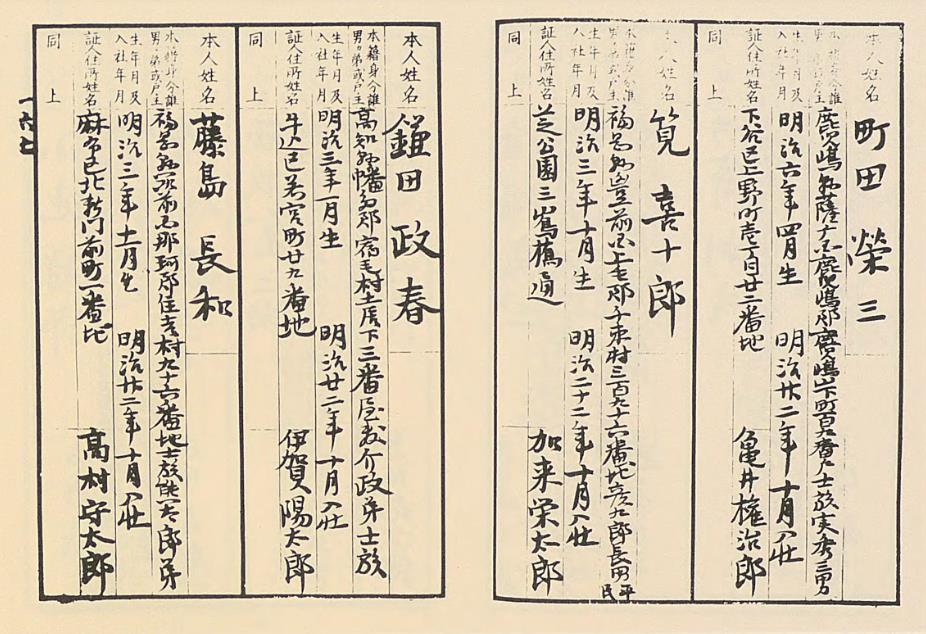 本人姓名
町田榮三
本籍身分誰
男弟或戸主
鹿児嶋縣薩广国鹿児嶋郡鹿児嶋山下町百 番戸士族実秀三男
生年月及
入社年月
明治六年四月生 明治廿二年十月入社
証人住所姓名
下谷区上野町壱丁目廿二番地 亀井権治郎
同上
本人姓名
筧喜十郎
本籍身分誰
男弟或戸主
福岡縣豊前国上毛郡 村三百九十六番地彦九郎長男平民
生年月及
入社年月
明治三年十月生 明治二十二年十月入社
証人住所姓名
芝公園三嶌橋通 加来栄太郎
同上
本人姓名
鎌田政春
本籍身分誰
男弟或戸主
高知縣幡多郡宿毛村土居下三番屋敷介政弟士族
生年月及
入社年月
明治三年一月生 明治廿二年十月入社
証人住所姓名
牛込区若宮町廿九番地 伊賀陽太郎
同上
本人姓名
藤島長和
本籍身分誰
男弟或戸主
福岡縣筑前国那珂郡住吉村九十六番地士族 太郎弟
生年月及
入社年月
明治三年十一月生 明治廿二年十月入社
証人住所姓名
麻布区北新門前町一番地 高村守太郎
同上
一六七